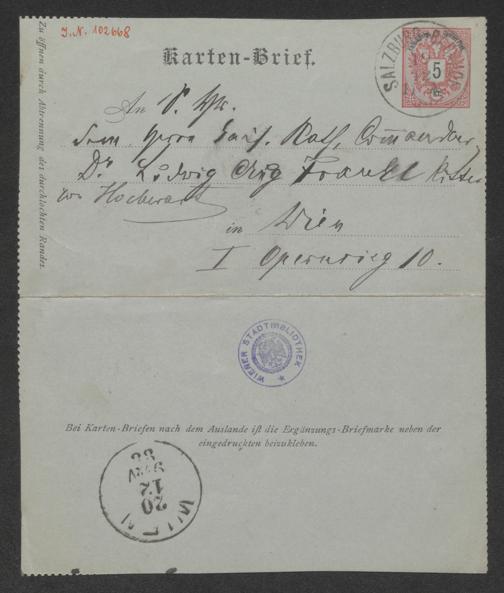 Zu öffnen durch Abtrennung des durchlochten Randes.
I.N. 102668
Karten-Brief.
SALZBURG
5
An S. W.
dem Herrn Kais. Rath, Commandeur
Dr Ludwig Aug Frankl Ritter
von Hochwart
in Wien
I Opernring 10.
WIENER STADTBIBLIOTHEK
Bei Karten-Briefen nach dem Auslande ist die Ergänzungs-Briefmarke neben der
eingedruckten beizukleben.
WIEN
20
12
88